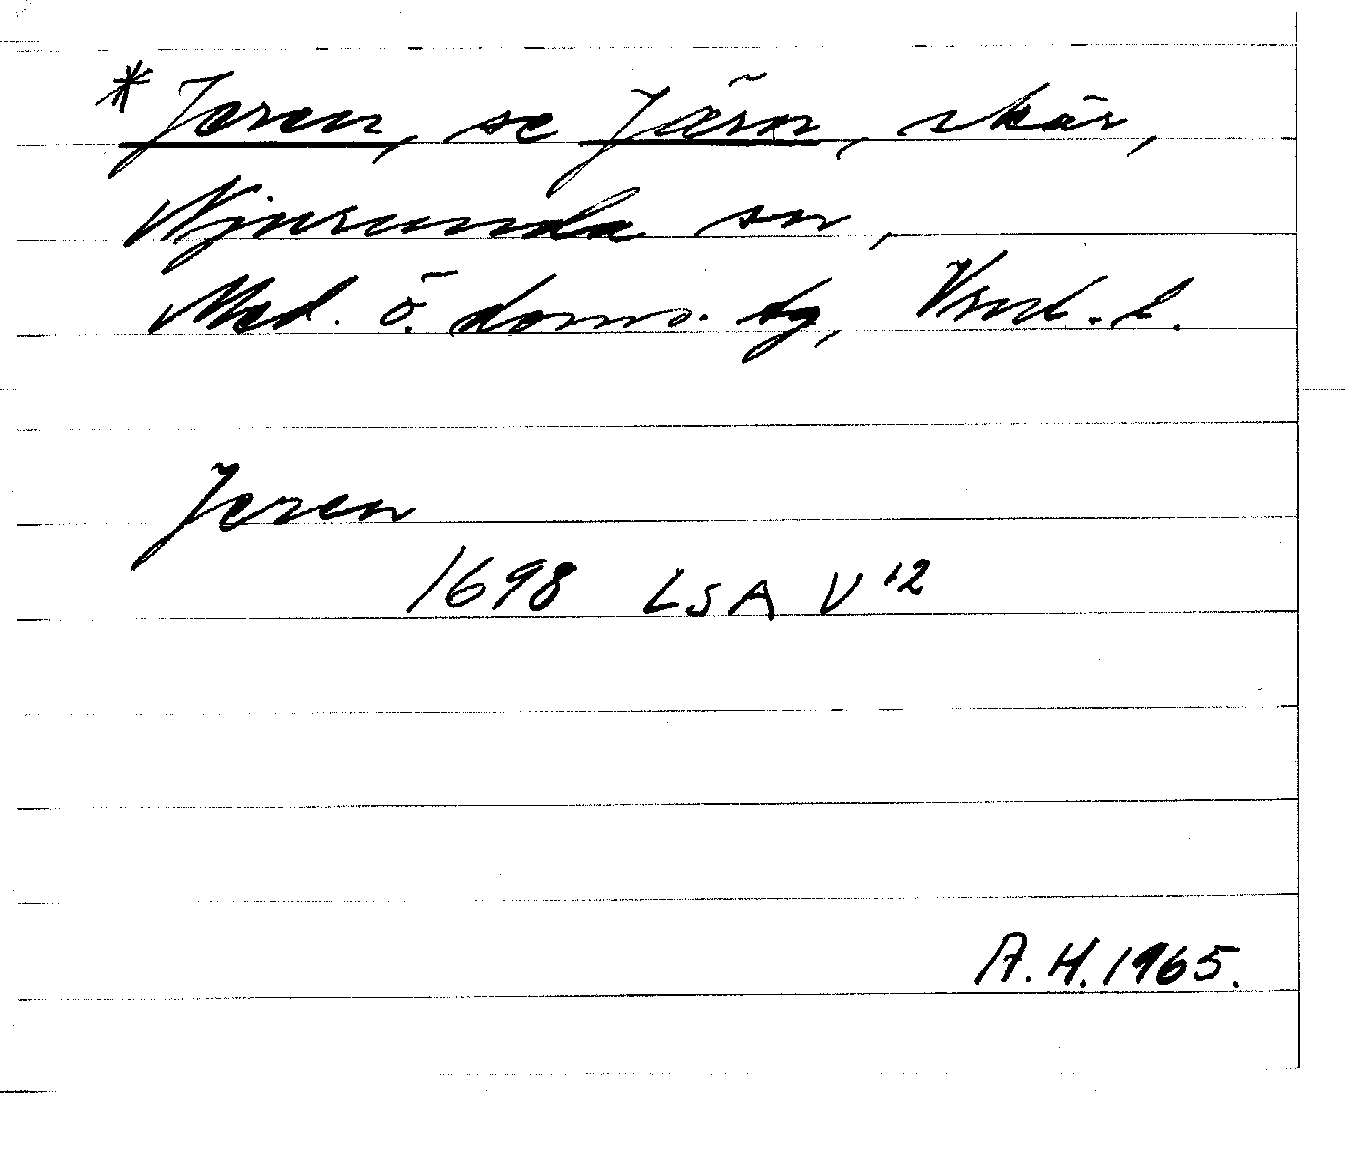 * Jeren, se Järon, skär,
Njurunda sn,
Med. ö. doms. tg, Vrnl. l.
Jeren
1698 LSA V 12
A. H. 1965.